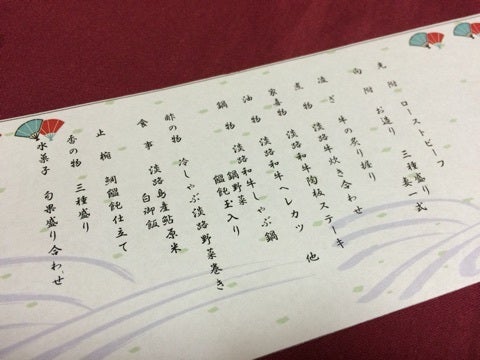 先附 ローストビーフ
向附 お造り 三種盛り 妻一式
凌ぎ 牛の炙り握り
煮物 淡路牛炊き合わせ
家喜物 淡路和牛陶板ステーキ
油物 淡路和牛ヘレカツ 他
鍋物 淡路和牛しゃぶ鍋
鍋野菜
饂飩玉入り
酢の物 冷しゃぶ淡路野菜巻き
食事 淡路島産鮎原米
白御飯
止椀 鯛饂飩仕立て
香の物 三種盛り
水菓子 旬果盛り合わせ